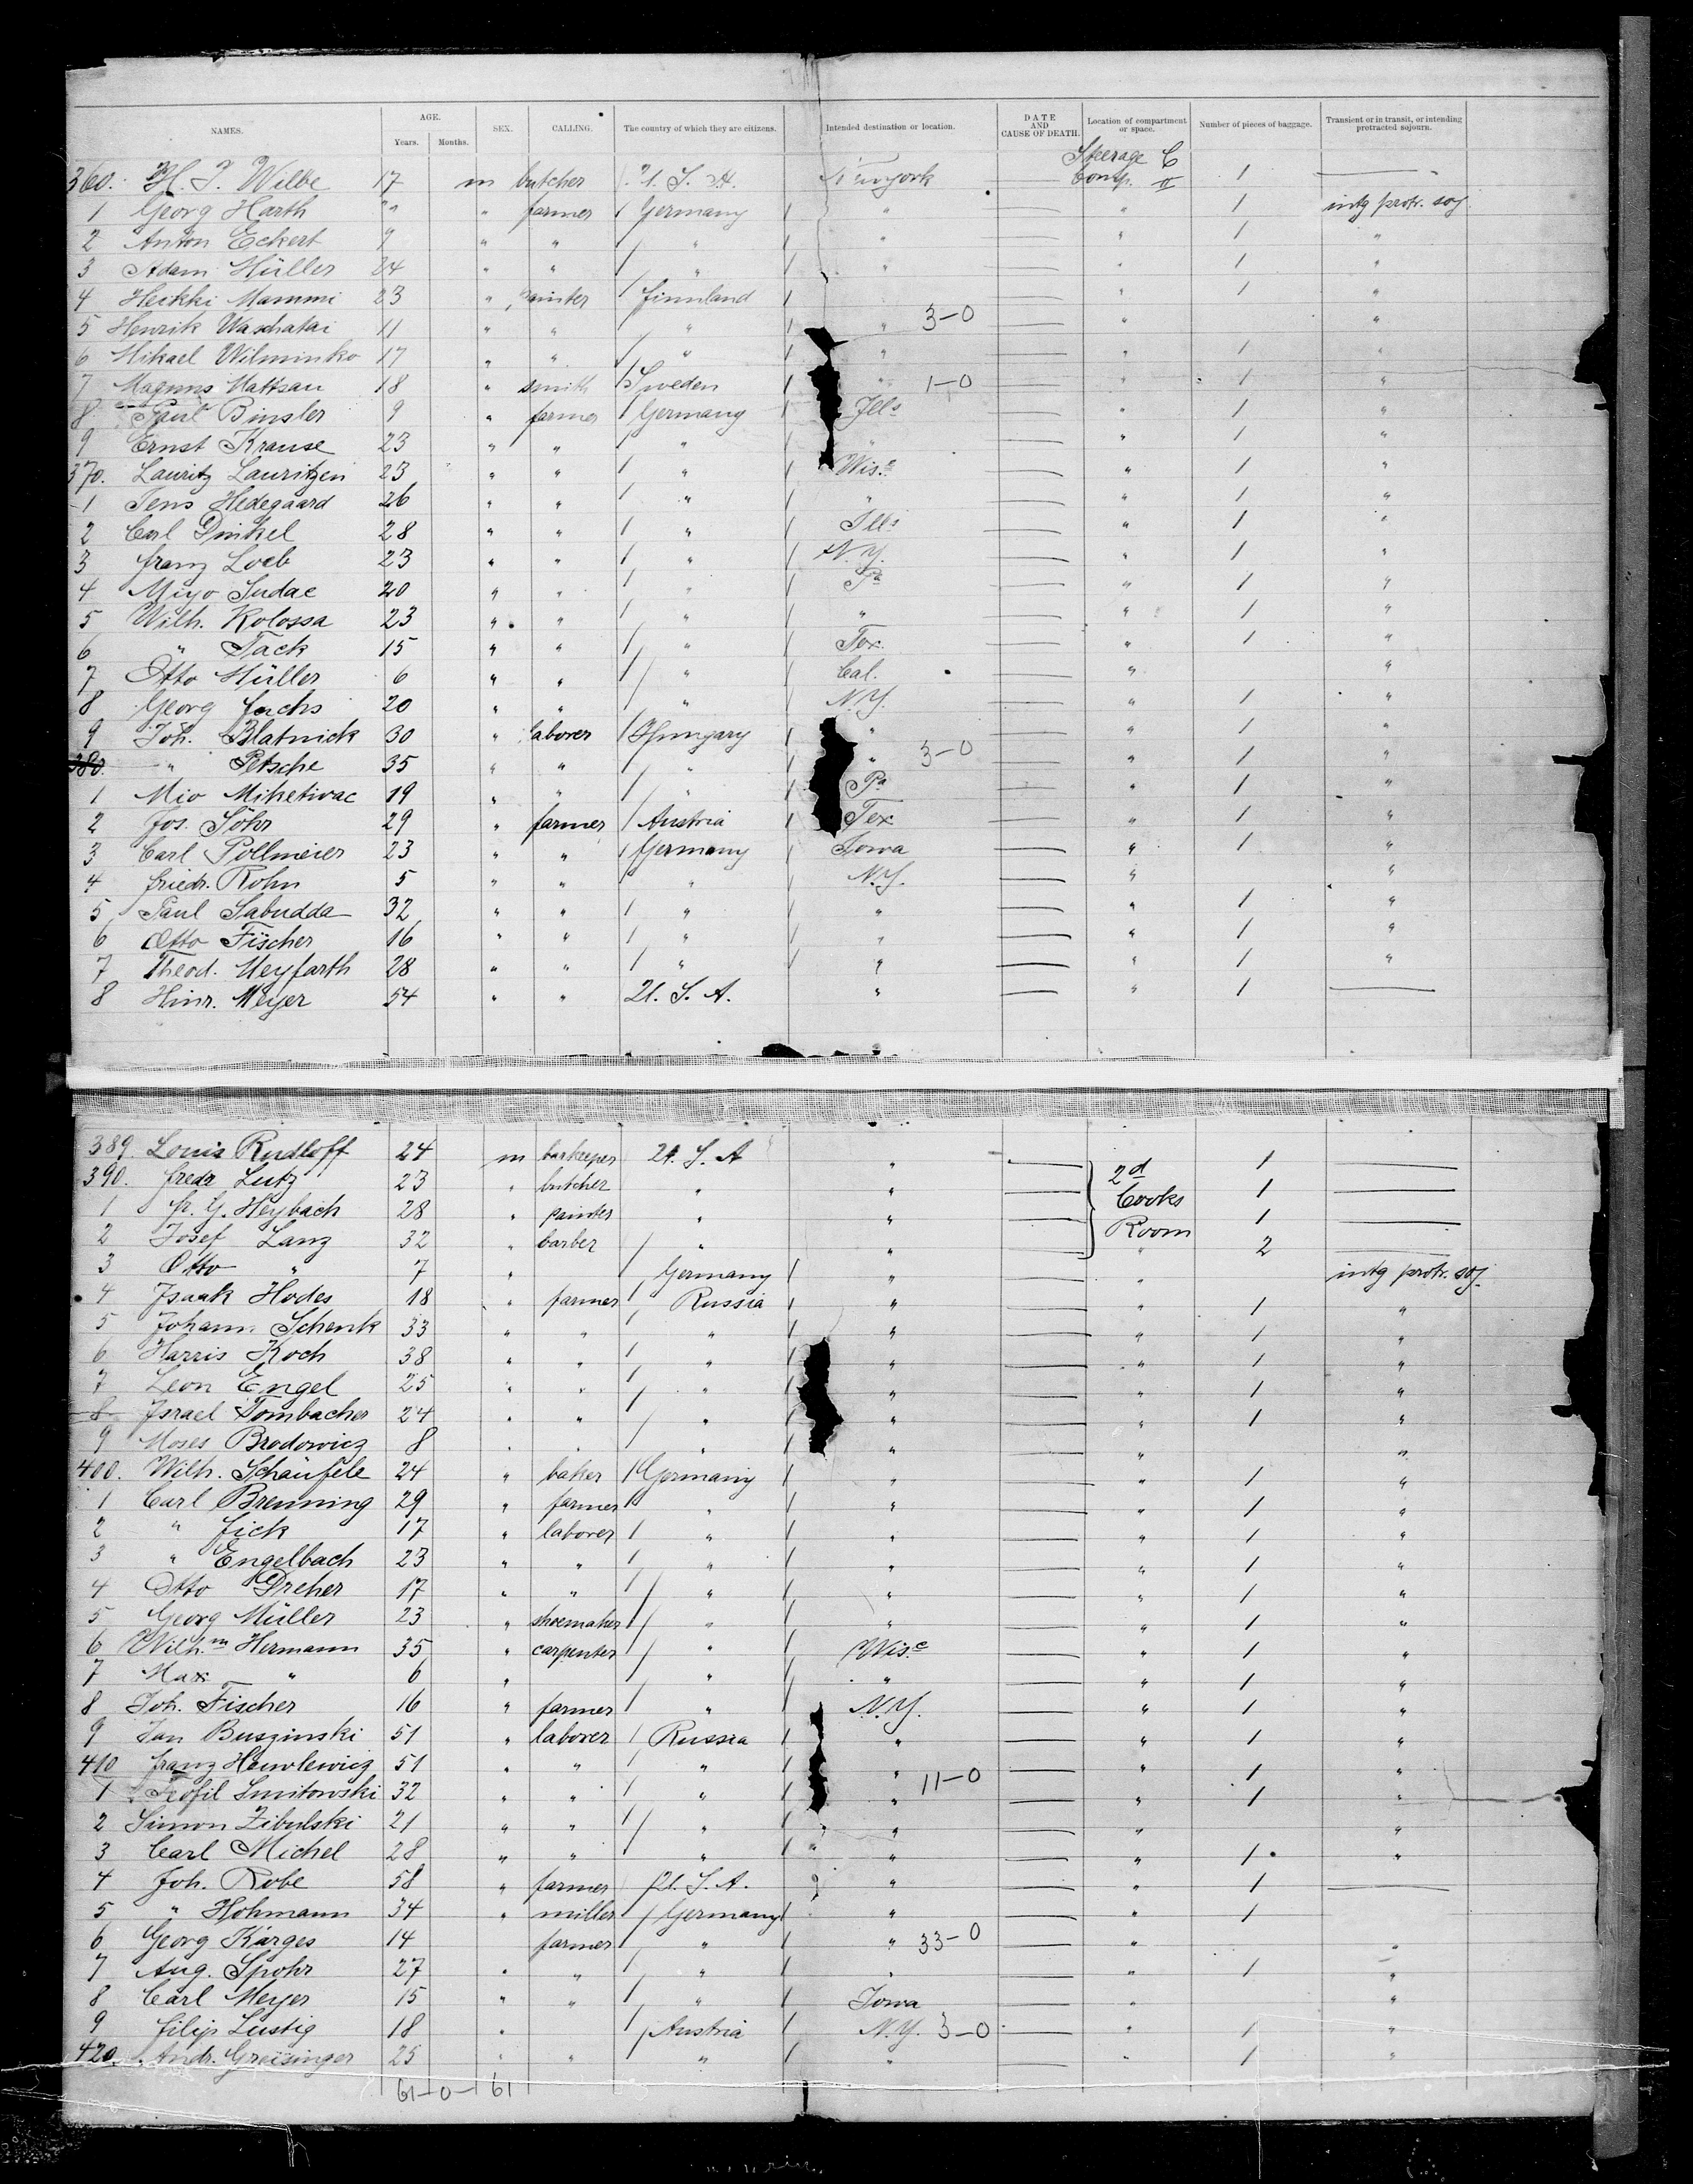 NAMES. AGE. Years. Months. SEX. CALLING. The country of which they are citizens. Intended destination or location. DATE AND CAUSE OF DEATH. Location of compartment or space. Number of pieces of baggage. Transient or in transit, or intending protracted sojourn.
360. H. J. Wilbe 17 m butcher U. S. A. Newyork — Steerage C Comp. II 1 —
1 Georg Harth " " farmer / Germany / " — " 1 intg protr. soj
2 Anton Eckert 9 " " / " / " — " 1 "
3 Adam Hüller 24 " " / " / " — " 1 "
4 Heikki Mammi 23 " painter / Finnland / — " 1 "
5 Henrik Waschatai 11 " " / " / " 3-0 — " "
6 Mikael Wilminko 17 " " / " / " — " 1 "
7 Magnus Mattsau 18 " smith / Sweden / " 1-0 — " 1 "
8 Paul Binsler 9 " farmer / Germany / Ills — " 1 "
9 Ernst Krause 23 " " / " / " — " 1 "
370. Lauritz Lauritzen 23 " " / " / Wisc — " 1 "
1 Jens Hedegaard 26 " " / " / " — " 1 "
2 Carl Dinkel 28 " " / " / Ills — " 1 "
3 Franz Loeb 23 " " / " / N.Y. — " 1 "
4 Miyo Sudac 20 " " / " / Pa — " 1 "
5 Wilh. Kolossa 23 " " / " / " — " 1 "
6 " Tack 15 " " / " / Tex. — " 1 "
7 Otto Müller 6 " " / " / Cal. — " "
8 Georg Fuchs 20 " " / " / N.Y. — " 1 "
9 Joh. Blatnick 30 " laborer / Hungary " — " 1 "
380. " Petsche 35 " " / " / " 3-0 — " 1 "
1 Mio Miketivac 19 " " / " / Pa — " 1 "
2 Jos. Söhr 29 " farmer / Austria / Tex — " 1 "
3 Carl Pollmeier 23 " " / Germany / Iowa — " 1 "
4 Friedr. Rohn 5 " " / " / N.Y. — " "
5 Paul Sabudda 32 " " / " / " — " 1 "
6 Otto Fischer 16 " " / " / " — " 1 "
7 Theod. Meyfarth 28 " " / " / " — " 1 "
8 Hinr. Meyer 54 " " U. S. A. " — " 1 —
389. Louis Rudloff 24 m barkeeper U. S. A " — 2d 1 —
390. Fredr Lutz 23 " butcher " " — Cooks 1 —
1 Fr. G. Heybach 28 " painter " " — Room 1 —
2 Josef Lanz 32 " barber / " " — " 2 —
3 Otto " 7 " / Germany / " — " intg protr. soj.
4 Isaak Hodes 18 " farmer / Russia / " — " 1 "
5 Johann Schenk 33 " " / " / " — " 1 "
6 Harris Koch 38 " " / " / " — " 1 "
7 Leon Engel 25 " " / " / " — " 1 "
8 Israel Tombacher 24 " " / " " — " 1 "
9 Moses Brodowicz 8 " " / " / " — " "
400. Wilh. Schäufele 24 " baker / Germany / " — " 1 "
1 Carl Brenning 29 " farmer / " / " — " 1 "
2 " Fick 17 " laborer / " / " — " 1 "
3 " Engelbach 23 " " / " / " — " 1 "
4 Otto Dreher 17 " " / " / " — " 1 "
5 Georg Müller 23 " shoemaker / " / " — " 1 "
6 Wilh.m Hermann 35 " carpenter / " / Wisc — " 1 "
7 Max " 6 " / " / " — " 1 "
8 Joh. Fischer 16 " farmer / " / N.Y. — " 1 "
9 Jan Buszinski 51 " laborer / Russia / " — " 1 "
410 Franz Hewlewicz 51 " " / " / " — " 1 "
1 Teofil Smitowski 32 " " / " / " 11-0 — " 1 "
2 Simon Zibulski 21 " " / " / " — " "
3 Carl Michel 28 " " / " / " — " 1 "
4 Joh. Robe 58 " farmer U. S. A. " — " 1 —
5 " Hohmann 34 " miller / Germany / " — " 1
6 Georg Karges 14 farmer / " / " 33-0 — " "
7 Aug. Spohr 27 " " / " / " — " 1 "
8 Carl Meyer 15 " " / " / Iowa — " "
9 Filip Lustig 18 " / Austria / N.Y. 3-0 — " 1 "
420. Andr. Greisinger 25 " " / " / " — " 1 "
61-0-61